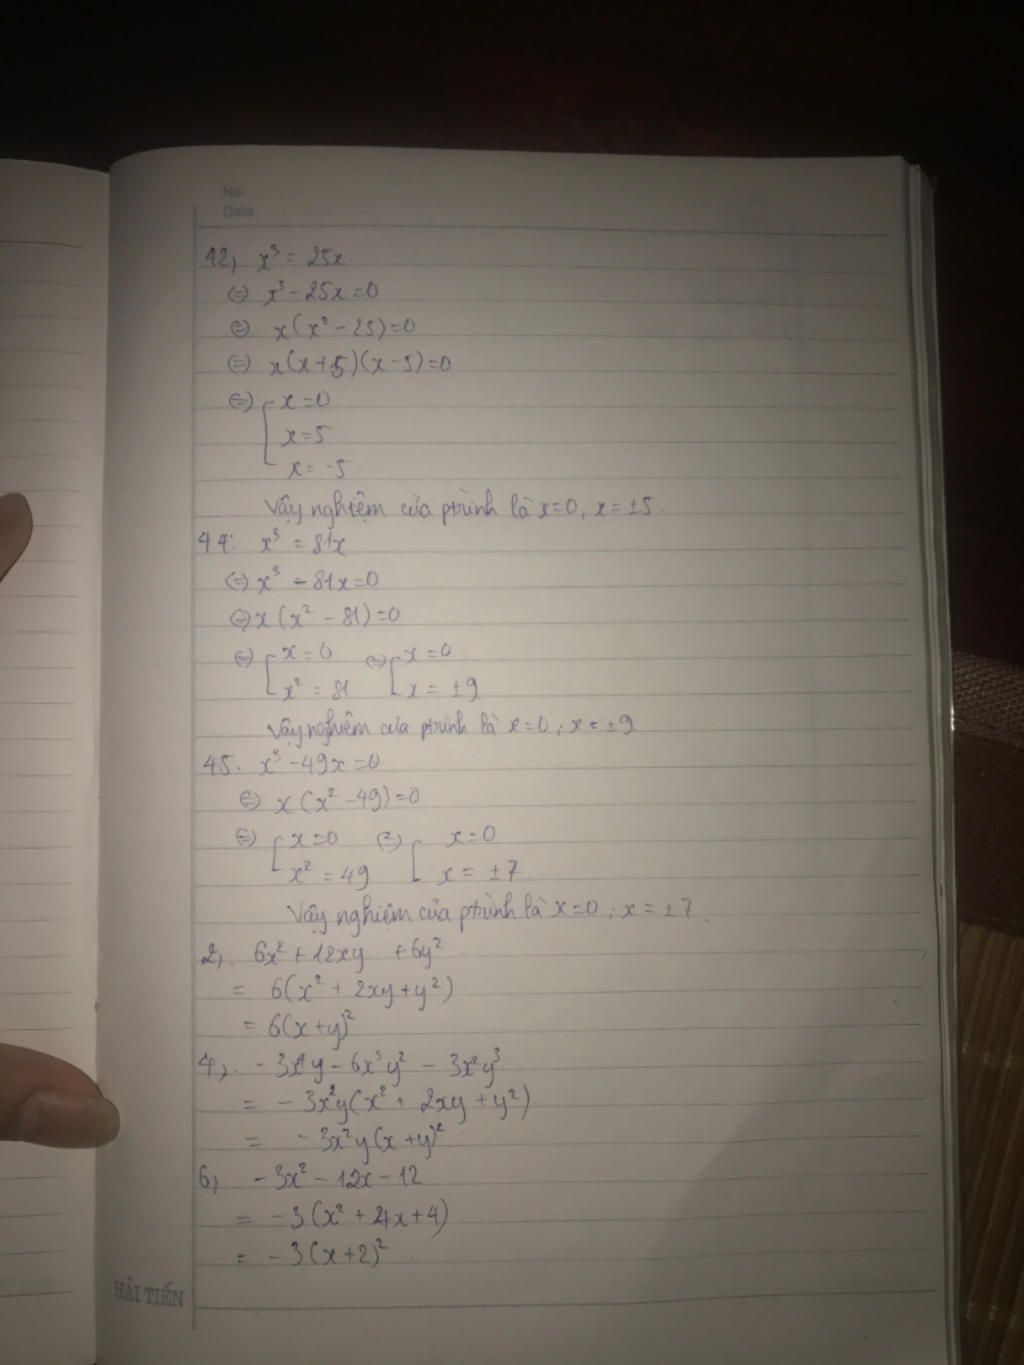 No.
Date
42, x³ = 25x.
⇔ x³ - 25x = 0
⇔ x(x² - 25) = 0
⇔ x(x+5)(x-5) = 0
⇔ [ x = 0
x = 5
x = -5
Vậy nghiệm của ptrình là x=0, x = ±5.
44. x³ = 81x
⇔ x³ - 81x = 0
⇔ x(x² - 81) = 0
⇔ [ x = 0 ⇔ [ x = 0
x² = 81 x = ±9
Vậy nghiệm của ptrình là x=0; x = ±9
45. x³ - 49x = 0
⇔ x(x² - 49) = 0
⇔ [ x = 0 ⇔ [ x = 0
x² = 49 x = ±7
Vậy nghiệm của ptrình là x=0; x = ±7.
2,. 6x² + 12xy + 6y²
= 6(x² + 2xy + y²)
= 6(x+y)²
4,. -3x⁴y - 6x³y² - 3x²y³
= -3x²y(x² + 2xy + y²)
= -3x²y(x+y)²
6, -3x² - 12x - 12
= -3(x² + 4x + 4)
= -3(x+2)²
HẢI TIẾN